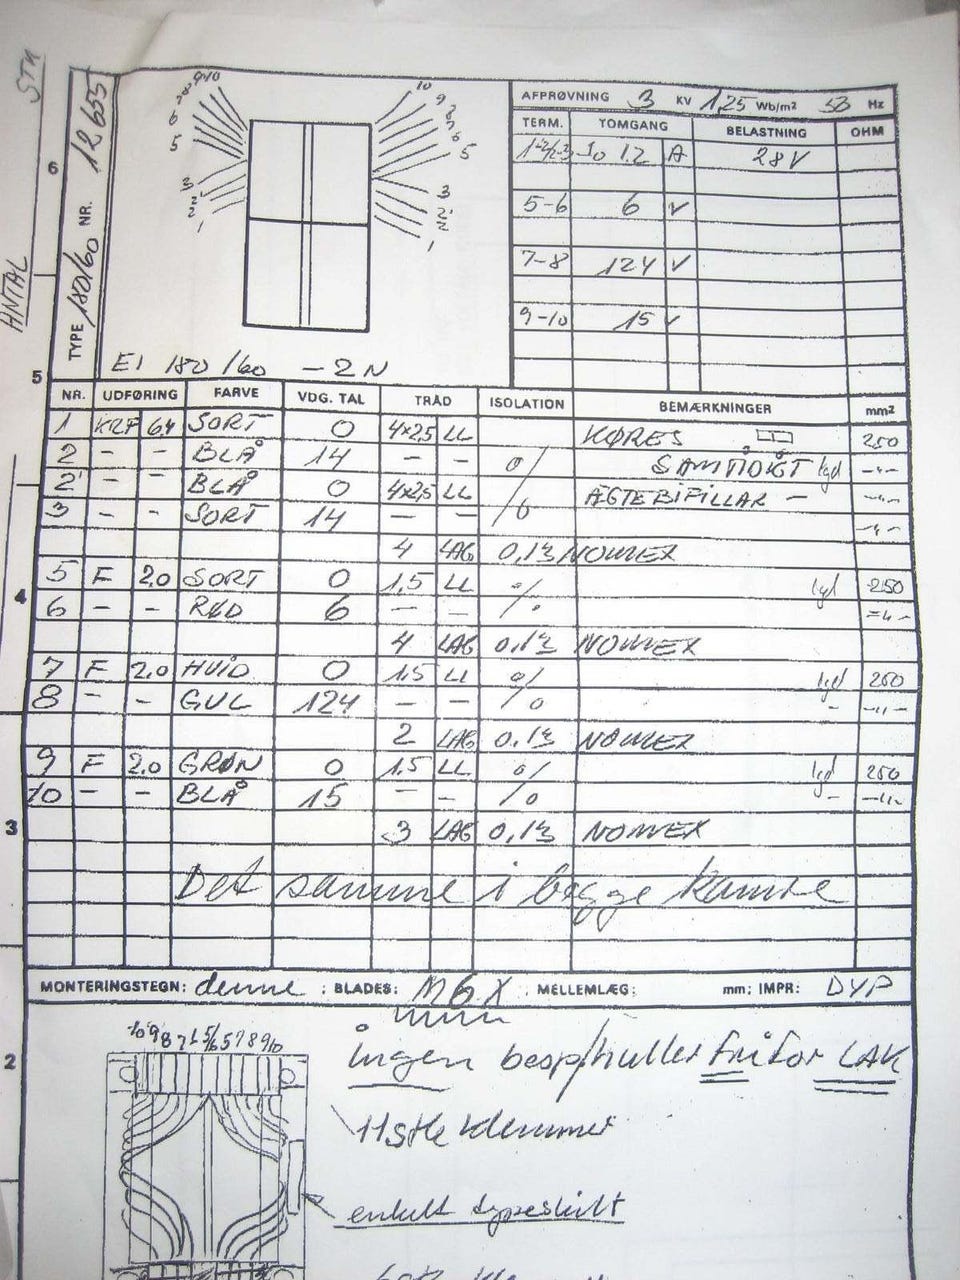 STK
ANTAL
6
5
4
3
2
TYPE 180/60 NR. 12655
9 10
8
7
6
5
3
2'
2
1
10
9
8
7
6
5
3
2'
2
1
EI 180/60 - 2N
AFPRØVNING 3 KV 1,25 Wb/m² 50 Hz
TERM. TOMGANG BELASTNING OHM
1-2/2-3 Io 1.2 A 28V
5-6 6 V
7-8 124 V
9-10 15 V
NR. UDFØRING FARVE VDG. TAL TRÅD ISOLATION BEMÆRKNINGER mm²
1 KRF 64 SORT 0 4×2,5 LL KØRES 250
2 - - BLÅ 14 - - 0/ SAMTIDIGT lgd -"-
2' - - BLÅ 0 4×2,5 LL ÆGTE BIFILLAR - -"-
3 - - SORT 14 - - /0 -"-
4 LAG 0,13 NOMEX
5 F 2.0 SORT 0 1,5 LL 0/ lgd 250
6 - - RØD 6 - - /0 -"-
4 LAG 0,13 NOMEX
7 F 2.0 HVID 0 1,5 LL 0/ lgd 250
8 - - GUL 124 /0 - -"-
2 LAG 0,13 NOMEX
9 F 2.0 GRØN 0 1,5 LL 0/ lgd 250
10 - - BLÅ 15 - - /0 - -"-
3 LAG 0,13 NOMEX
Det samme i begge kamre
MONTERINGSTEGN: denne ; BLADES: M6X ; MELLEMLÆG: mm; IMPR: DYP
ingen huller fri for LAK
11 stk klemmer
enkelt typeskilt